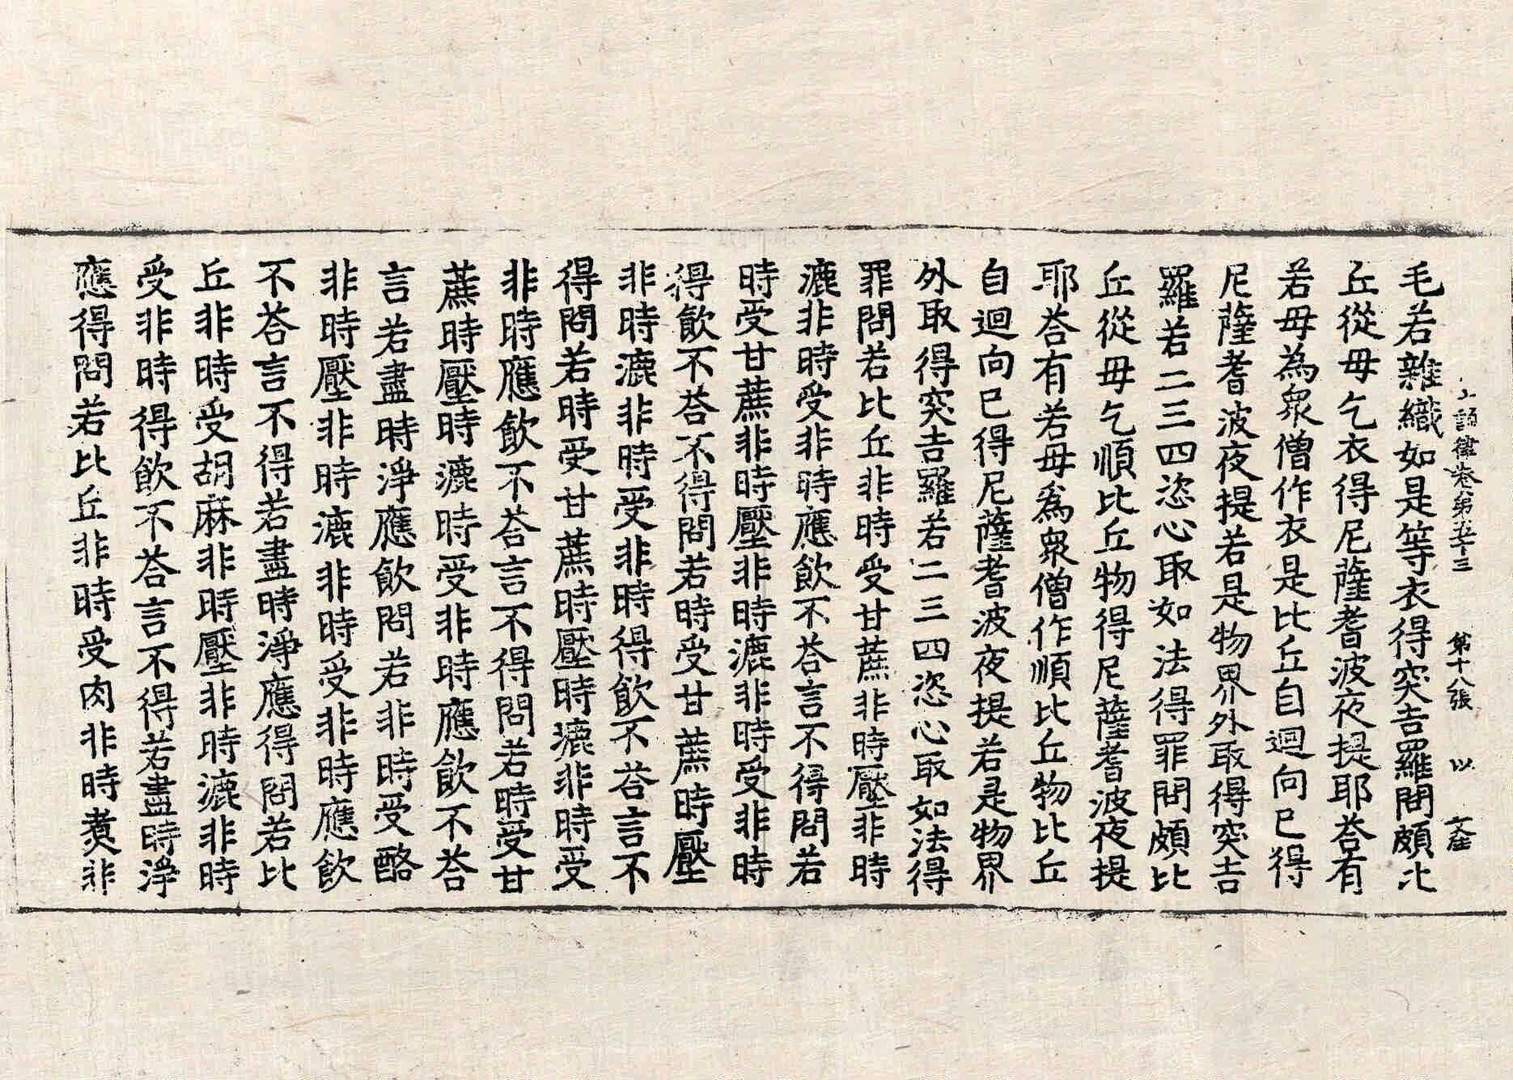 毛若雜織如是等衣得突吉羅問頗比
丘從毋乞衣得尼薩耆波夜提耶荅有
若毋為衆僧作衣是比丘自迴向已得
尼薩耆波夜提若是物界外取得突吉
羅若二三四恣心取如法得罪問頗比
丘從毋乞順比丘物得尼薩耆波夜提
耶荅有若毋爲衆僧作順比丘物比丘
自迴向已得尼薩耆波夜提若是物界
外取得突吉羅若二三四恣心取如法得
罪問若比丘非時受甘蔗非時壓非時
漉非時受非時應飲不荅言不得問若
時受甘蔗非時壓非時漉非時受非時
得飲不荅不得問若時受甘蔗時壓
非時漉非時受非時得飲不荅言不
得問若時受甘蔗時壓時漉非時受
非時應飲不荅言不得問若時受甘
蔗時壓時漉時受非時應飲不荅
言若盡時淨應飲問若非時受酪
非時壓非時漉非時受非時應飲
不荅言不得若盡時淨應得問若比
丘非時受胡麻非時壓非時漉非時
受非時得飲不荅言不得若盡時淨
應得問若比丘非時受肉非時煑非
誦律卷第五十三 第十八張 以